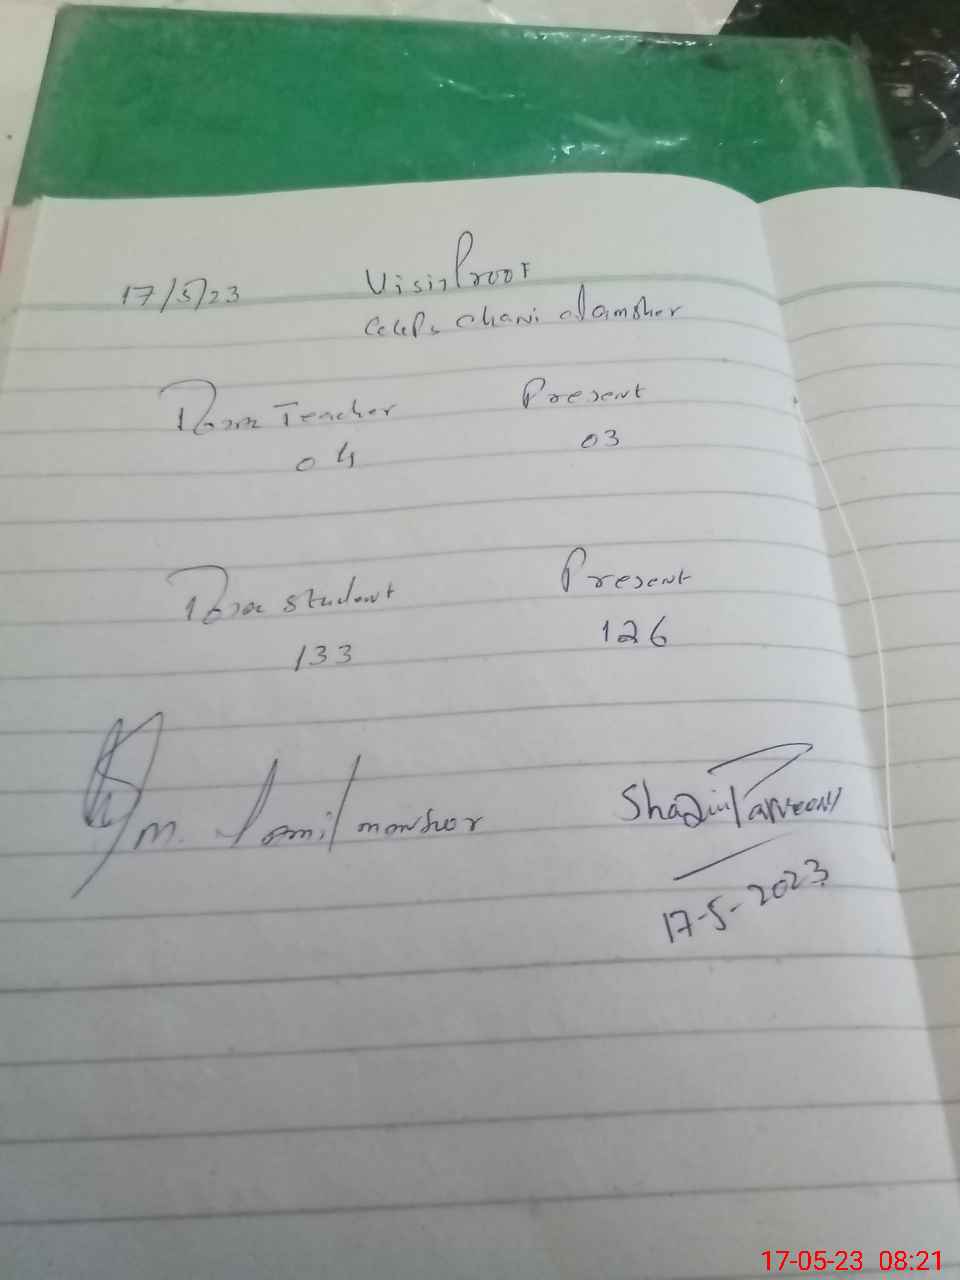 17/5/23 Visit Proof
chani
Teacher Present
04 03
student Present
133 126
M. Jamil
Shazia Parveen
17-5-2023
17-05-23 08:21